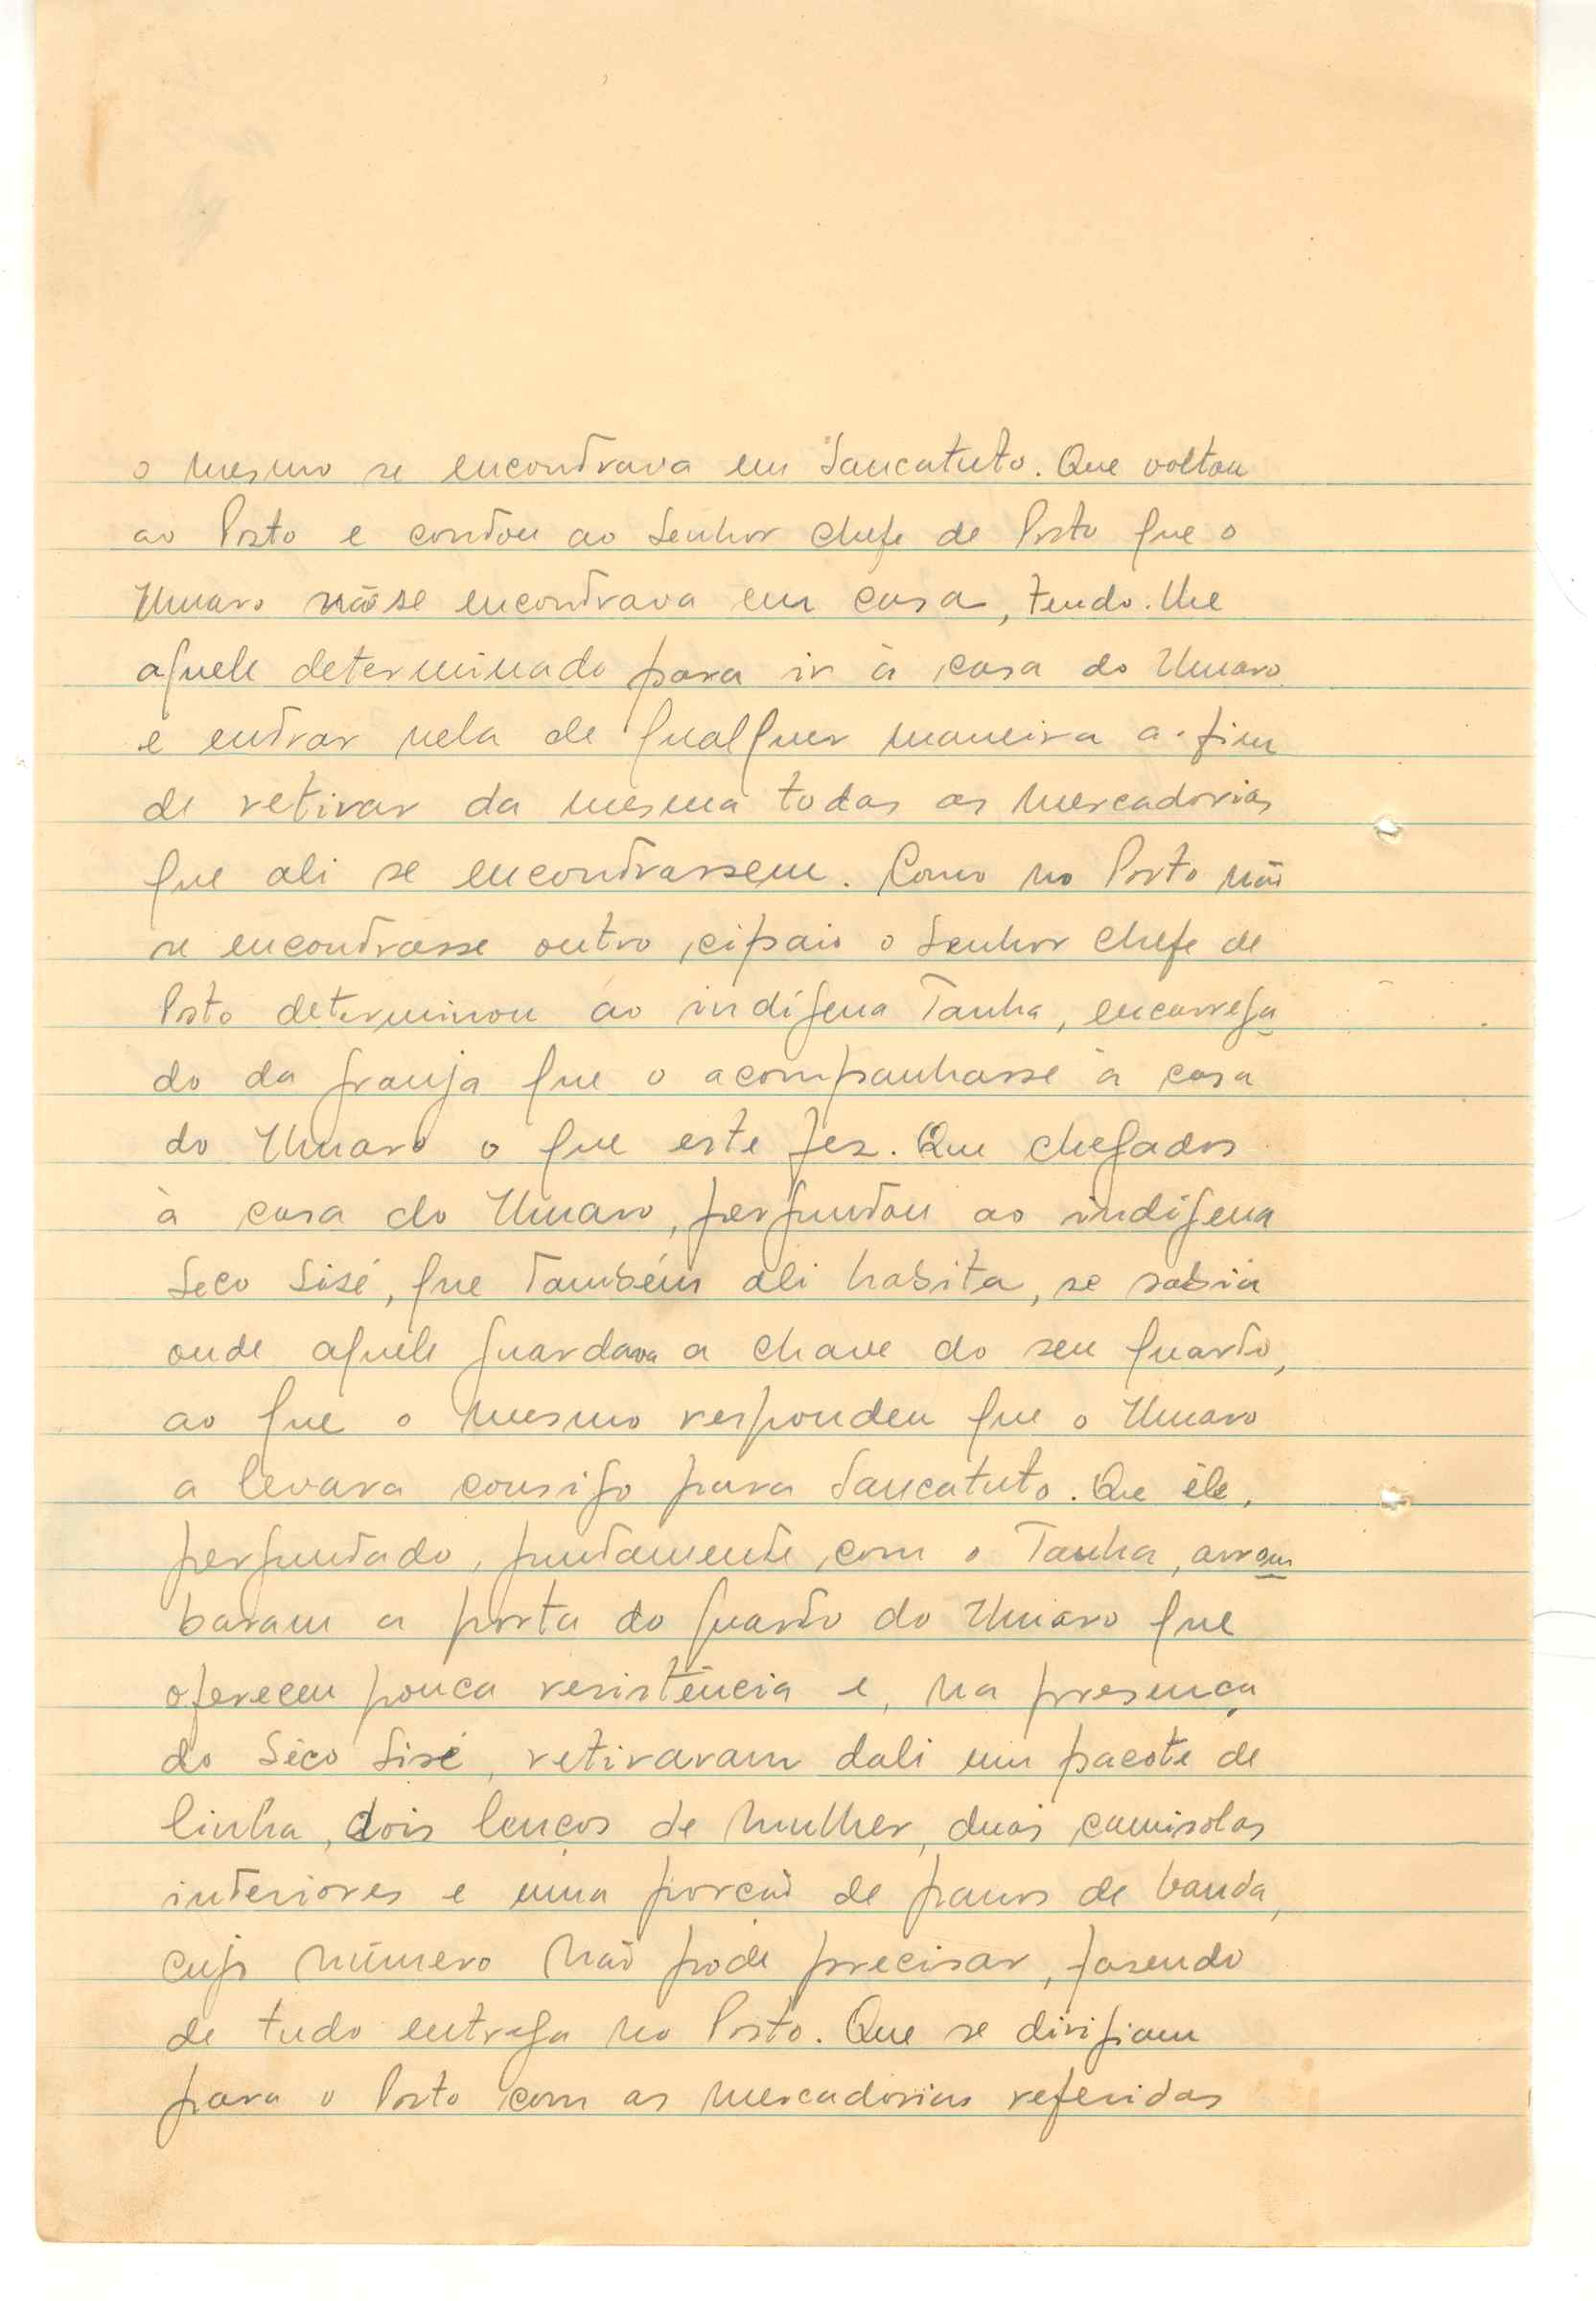 o mesmo se encontrava em Sancatuto. Que voltou
ao Posto e contou ao Senhor Chefe de Posto que o
Umaro não se encontrava em casa, tendo-lhe
aquele determinado para ir à casa do Umaro
e entrar nela de qualquer maneira a-fim
de retirar da mesma todas as mercadorias
que ali se encontrassem. Como no Posto não
se encontrasse outro cipaio o Senhor Chefe de
Posto determinou ao indígena Tanha, encarrega
do da granja que o acompanhasse à casa
do Umaro o que este fez. Que chegados
à casa do Umaro, perguntou ao indígena
Seco Sisé, que também ali habita, se sabia
onde aquele guardava a chave do seu quarto,
ao que o mesmo respondeu que o Umaro
a levara consigo para Sancatuto. Que êle,
perguntado, juntamente com o Tanha, arrom
baram a porta do quarto do Umaro que
ofereceu pouca resistência e, na presença
do Seco Sisé, retiraram dali um pacote de
linha, dois lenços de mulher, duas camisolas
interiores e uma porção de panos de banda,
cujo número não pode precisar, fazendo
de tudo entrega no Posto. Que se dirigiam
para o Posto com as mercadorias referidas